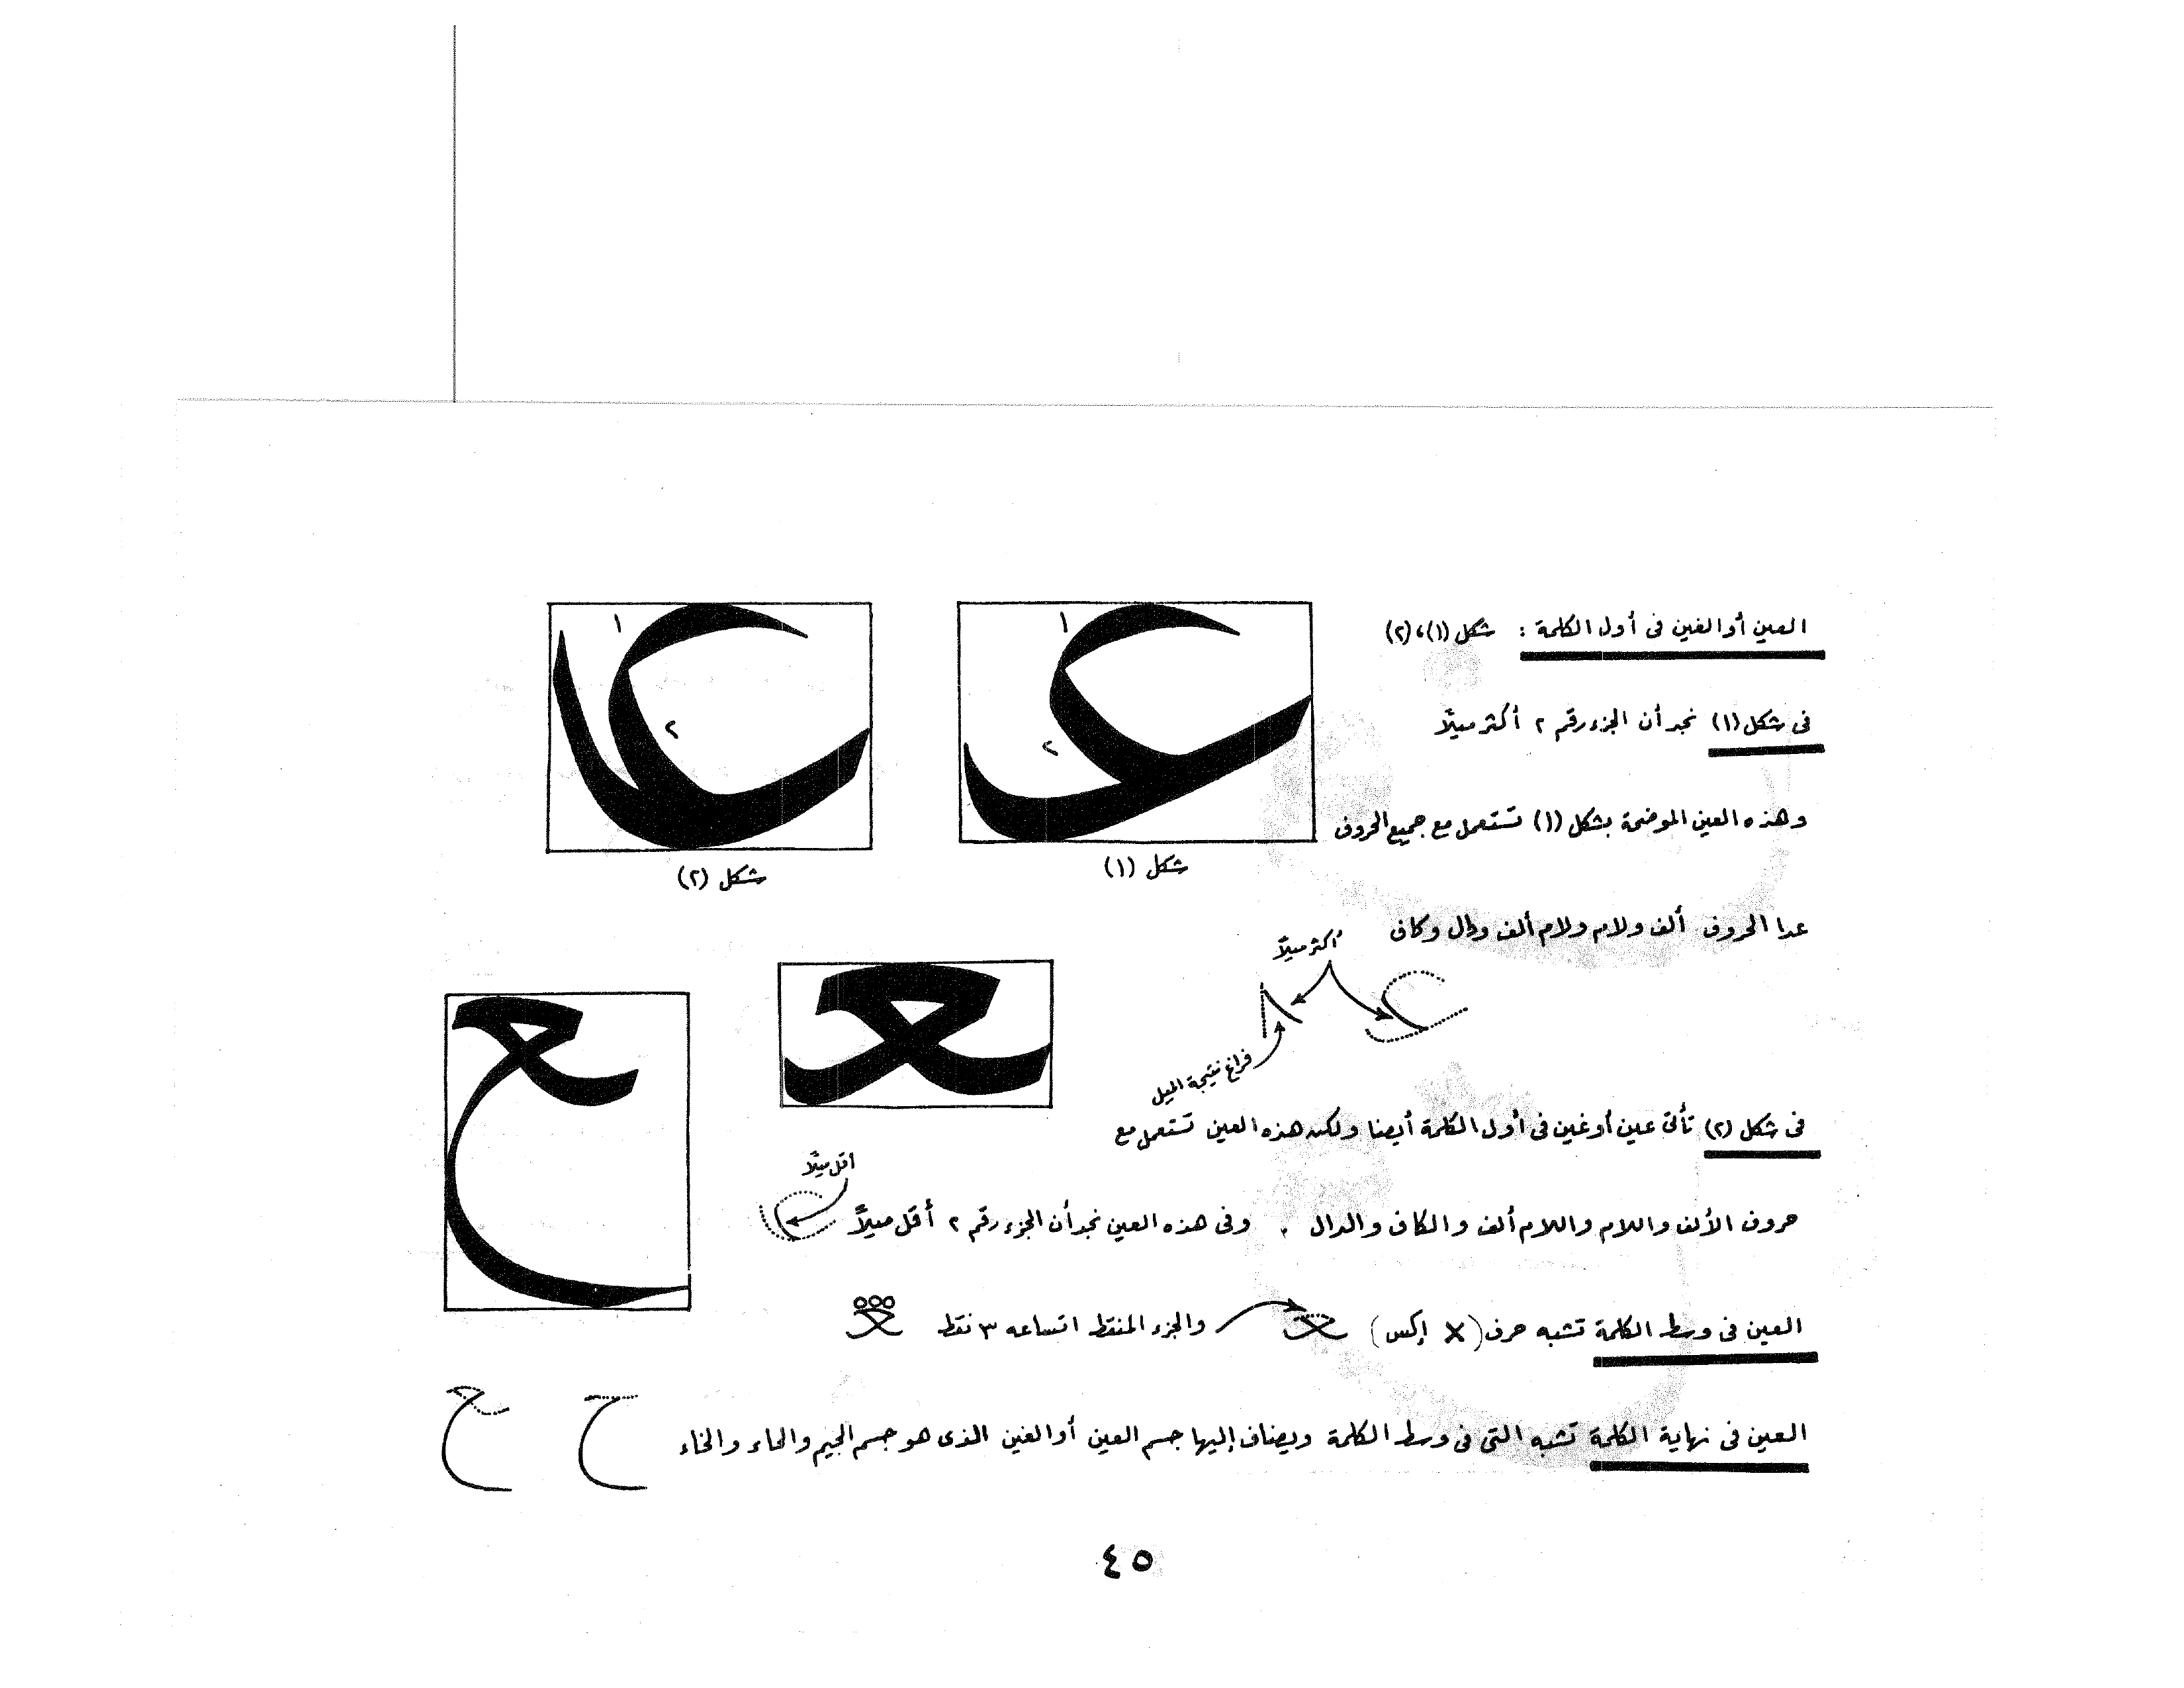 العين أو الغين فى أول الكلمة : شكل (١)،(٢)
فى شكل (١) نجد أن الجزء رقم ٢ أكثر ميلاً
وهذه العين الموضحة بشكل (١) تستعمل مع جميع الحروف
١
٢
شكل (١)
١
٢
شكل (٢)
عدا الحروف ألف ولام ولام ألف ودال وكاف
أكثر ميلاً
فراغ نتيجة الميل
فى شكل (٢) تأتى عين أو غين فى أول الكلمة أيضا ولكن هذه العين تستعمل مع
حروف الألف واللام واللام ألف والكاف والدال . وفى هذه العين نجد أن الجزء رقم ٢ أقل ميلاً
أقل ميلاً
العين فى وسط الكلمة تشبه حرف (X إكس) والجزء المنقط اتساعه ٣ نقط
العين فى نهاية الكلمة تشبه التى فى وسط الكلمة ويضاف إليها جسم العين أو الغين الذى هو جسم الجيم والحاء والخاء
٤٥